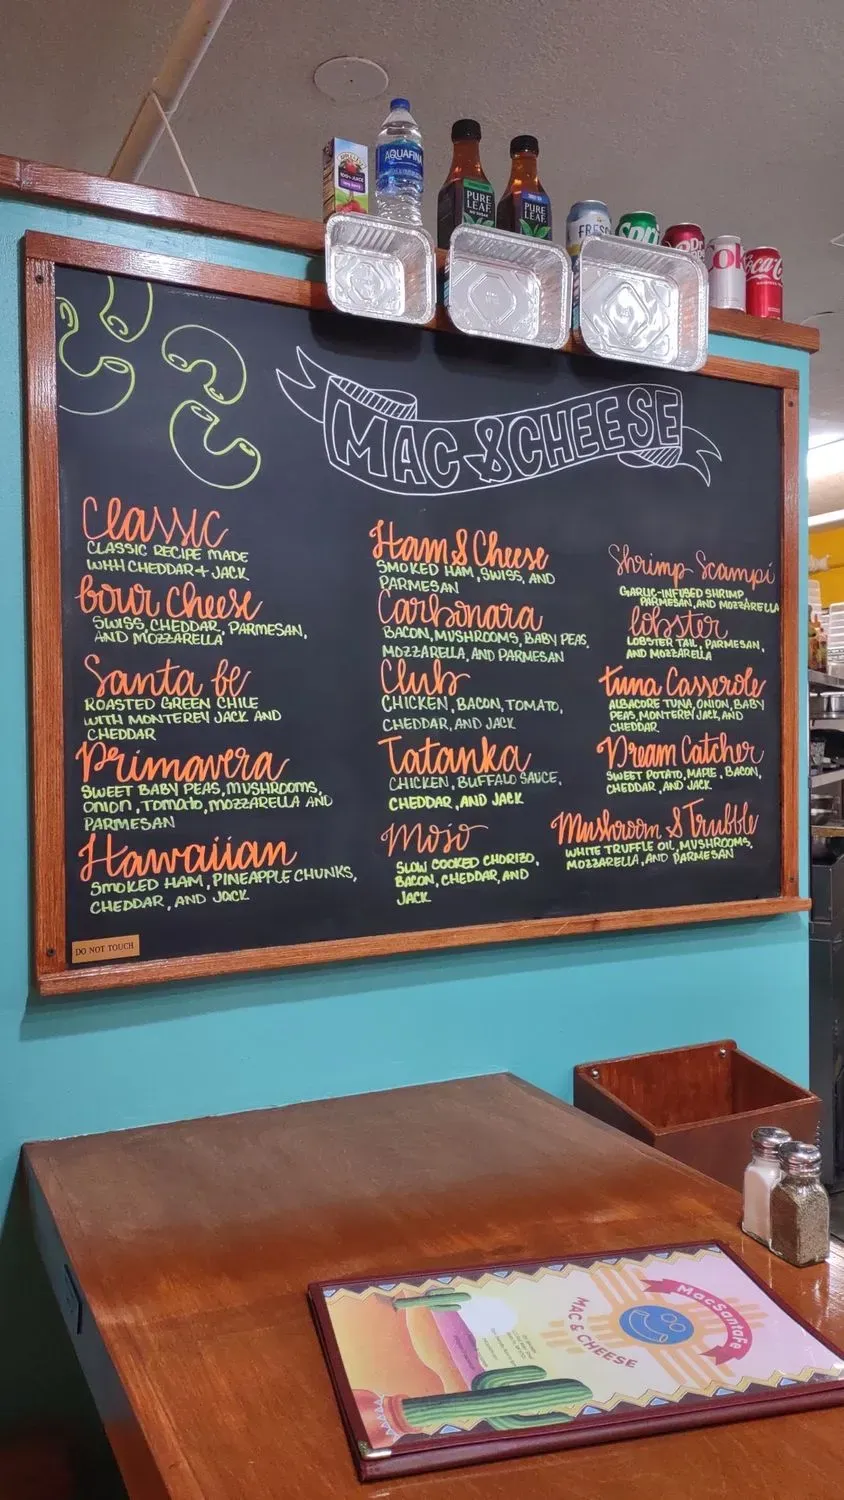 100% JUICE
AQUAFINA
PURE
LEAF
PURE
LEAF
FRESC
Dr
Coca
MAC & CHEESE
Classic
CLASSIC RECIPE MADE
WITH CHEDDAR + JACK
four cheese
SWISS, CHEDDAR, PARMESAN,
AND MOZZARELLA
Santa fe
ROASTED GREEN CHILE
WITH MONTEREY JACK AND
CHEDDAR
Primavera
SWEET BABY PEAS, MUSHROOMS,
ONION, TOMATO, MOZZARELLA AND
PARMESAN
Hawaiian
SMOKED HAM, PINEAPPLE CHUNKS,
CHEDDAR, AND JACK
Ham & Cheese
SMOKED HAM, SWISS, AND
PARMESAN
Carbonara
BACON, MUSHROOMS, BABY PEAS,
MOZZARELLA, AND PARMESAN
Club
CHICKEN, BACON, TOMATO,
CHEDDAR, AND JACK
Tatanka
CHICKEN, BUFFALO SAUCE,
CHEDDAR, AND JACK
Mojo
SLOW COOKED CHORIZO,
BACON, CHEDDAR, AND
JACK
Shrimp Scampi
GARLIC-INFUSED SHRIMP,
PARMESAN, AND MOZZARELLA
lobster
LOBSTER TAIL, PARMESAN,
AND MOZZARELLA
tuna Casserole
ALBACORE TUNA, ONION, BABY
PEAS, MONTEREY JACK, AND
CHEDDAR
Dream Catcher
SWEET POTATO, MAPLE, BACON,
CHEDDAR, AND JACK
Mushroom & Truffle
WHITE TRUFFLE OIL, MUSHROOMS,
MOZZARELLA, AND PARMESAN
DO NOT TOUCH
MacSantaFe
MAC & CHEESE